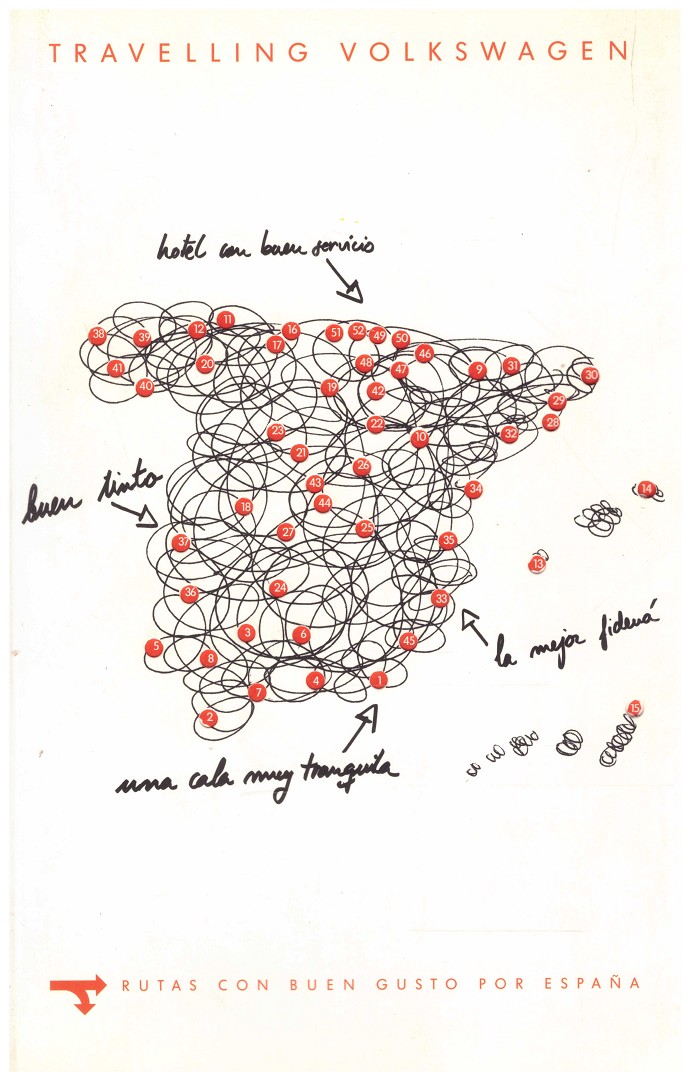 TRAVELLING VOLKSWAGEN
hotel con buen servicio
11
38 39 12 16 51 52 49 50
17 46
41 20 48 47 9 31 30
40 19 42
29
23 22 28
10 32
21
26
43 34 14
18 44
27 25
buen tinto
37 35
13
36 24 33
3 6
5 45
8
la mejor fideuá
7 4 1
2 15
una cala muy tranquila
RUTAS CON BUEN GUSTO POR ESPAÑA